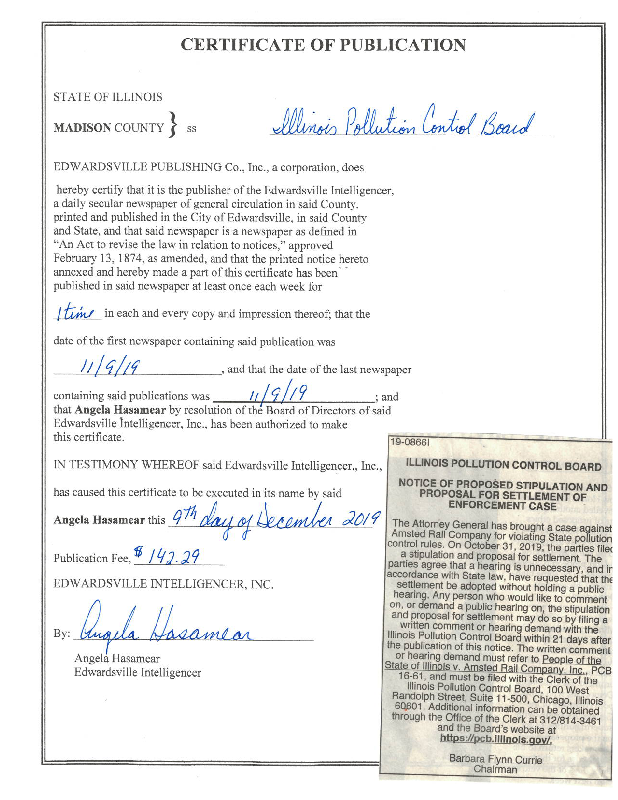 CERTIFICATE OF PUBLICATION
STATE OF ILLINOIS
MADISON COUNTY } ss
Illinois Pollution Control Board
EDWARDSVILLE PUBLISHING Co., Inc., a corporation, does
hereby certify that it is the publisher of the Edwardsville Intelligencer,
a daily secular newspaper of general circulation in said County,
printed and published in the City of Edwardsville, in said County
and State, and that said newspaper is a newspaper as defined in
"An Act to revise the law in relation to notices," approved
February 13, 1874, as amended, and that the printed notice hereto
annexed and hereby made a part of this certificate has been
published in said newspaper at least once each week for
1 time in each and every copy and impression thereof; that the
date of the first newspaper containing said publication was
11/9/19, and that the date of the last newspaper
containing said publications was 11/9/19; and
that Angela Hasamear by resolution of the Board of Directors of said
Edwardsville Intelligencer, Inc., has been authorized to make
this certificate.
IN TESTIMONY WHEREOF said Edwardsville Intelligencer., Inc.,
has caused this certificate to be executed in its name by said
Angela Hasamear this 9th day of December 2019
Publication Fee, $142.29
EDWARDSVILLE INTELLIGENCER, INC.
By: Angela Hasamear
Angela Hasamear
Edwardsville Intelligencer
19-0866I
ILLINOIS POLLUTION CONTROL BOARD
NOTICE OF PROPOSED STIPULATION AND
PROPOSAL FOR SETTLEMENT OF
ENFORCEMENT CASE
The Attorney General has brought a case against
Amsted Rail Company for violating State pollution
control rules. On October 31, 2019, the parties filed
a stipulation and proposal for settlement. The
parties agree that a hearing is unnecessary, and in
accordance with State law, have requested that the
settlement be adopted without holding a public
hearing. Any person who would like to comment
on, or demand a public hearing on, the stipulation
and proposal for settlement may do so by filing a
written comment or hearing demand with the
Illinois Pollution Control Board within 21 days after
the publication of this notice. The written comment
or hearing demand must refer to People of the
State of Illinois v. Amsted Rail Company, Inc., PCB
16-61, and must be filed with the Clerk of the
Illinois Pollution Control Board, 100 West
Randolph Street, Suite 11-500, Chicago, Illinois
60601. Additional information can be obtained
through the Office of the Clerk at 312/814-3461
and the Board's website at
https://pcb.illinois.gov/.
Barbara Flynn Currie
Chairman